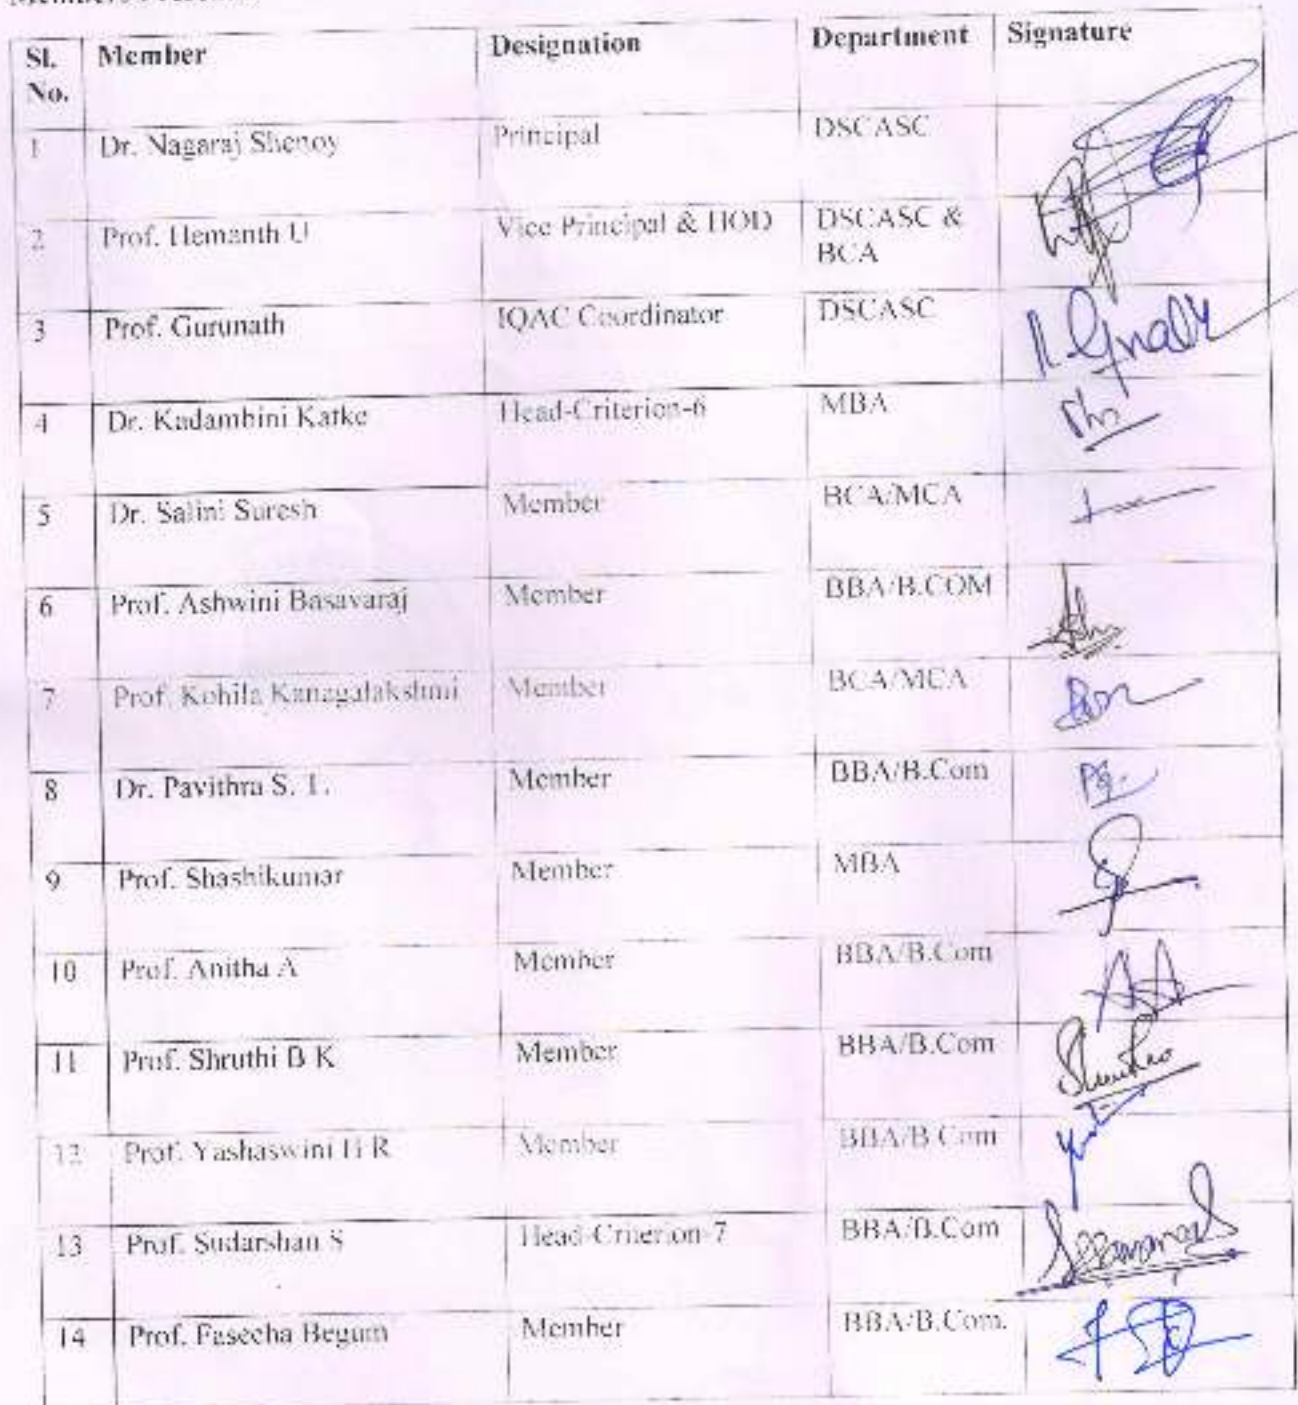 Sl. No. Member Designation Department Signature
1 Dr. Nagaraj Shenoy Principal DSCASC
2 Prof. Hemanth U Vice Principal & HOD DSCASC & BCA
3 Prof. Gurunath IQAC Coordinator DSCASC
4 Dr. Kadambini Katke Head-Criterion-6 MBA
5 Dr. Salini Suresh Member BCA/MCA
6 Prof. Ashwini Basavaraj Member BBA/B.COM
7 Prof. Kohila Kanagalakshmi Member BCA/MCA
8 Dr. Pavithra S. T. Member BBA/B.Com
9 Prof. Shashikumar Member MBA
10 Prof. Anitha A Member BBA/B.Com
11 Prof. Shruthi B K Member BBA/B.Com
12 Prof. Yashaswini H R Member BBA/B.Com
13 Prof. Sudarshan S Head-Criterion-7 BBA/B.Com
14 Prof. Faseeha Begum Member BBA/B.Com.